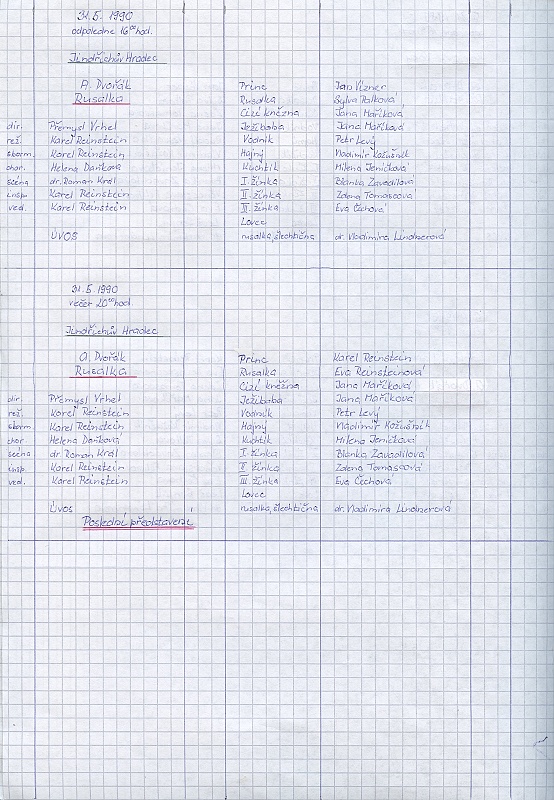 31.5. 1990
odpoledne 16 00 hod.
Jindřichův Hradec
A. Dvořák Princ Jan Vízner
Rusalka Rusalka Sylva Palková
Cizí kněžna Jana Maříková
dir. Přemysl Vrhel Ježibaba Jana Maříková
rež. Karel Reinstein Vodník Petr Levý
sborm. Karel Reinstein Hajný Vladimír Kožušník
chor. Helena Daňková Kuchtík Milena Jeníčková
scéna dr. Roman Král I. žínka Blanka Zavadilová
insp. Karel Reinstein II. žínka Zdena Tomascová
ved. Karel Reinstein III. žínka Eva Čechová
Lovec
ÚVOS rusalka, šlechtična dr. Vladimíra Lindnerová
31.5. 1990
večer 20 00 hod.
Jindřichův Hradec
A. Dvořák Princ Karel Reinstein
Rusalka Rusalka Eva Reinsteinová
Cizí kněžna Jana Maříková
dir. Přemysl Vrhel Ježibaba Jana Maříková
rež. Karel Reinstein Vodník Petr Levý
sborm. Karel Reinstein Hajný Vladimír Kožušník
chor. Helena Daňková Kuchtík Milena Jeníčková
scéna dr. Roman Král I. žínka Blanka Zavadilová
insp. Karel Reinstein II. žínka Zdena Tomascová
ved. Karel Reinstein III. žínka Eva Čechová
Lovec
ÚVOS rusalka, šlechtična dr. Vladimíra Lindnerová
Poslední představení